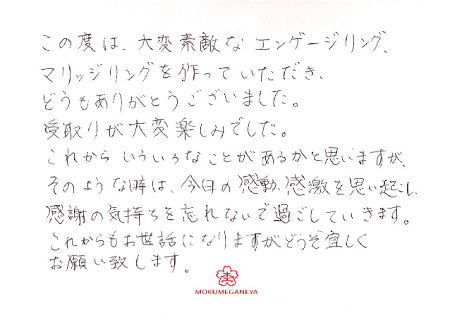 この度は、大変素敵なエンゲージリング、
マリッジリングを作っていただき、
どうもありがとうございました。
受取りが大変楽しみでした。
これからいろいろなことがあるかと思いますが、
そのような時は、今日の感動、感激を思い起こし、
感謝の気持ちを忘れないで過ごしていきます。
これからもお世話になりますがどうぞ宜しく
お願い致します。
MOKUMEGANEYA